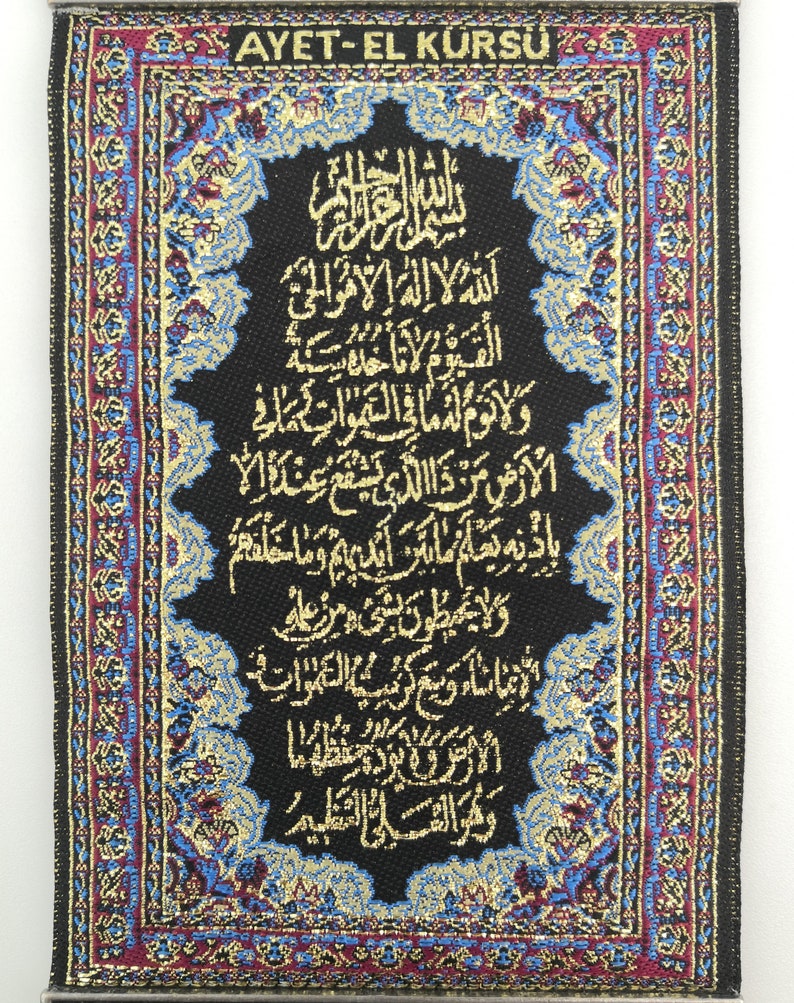 AYET-EL KÜRSÜ
بسم الله الرحمن الرحيم
اَللهُ لَا اِلٰهَ اِلَّا هُوَ الْحَىُّ
الْقَيُّومُ لَا تَأْخُذُهُ سِنَةٌ
وَلَا نَوْمٌ لَهُ مَا فِى السَّمٰوَاتِ وَمَا فِى
الْاَرْضِ مَنْ ذَا الَّذِى يَشْفَعُ عِنْدَهُ اِلَّا
بِاِذْنِهِ يَعْلَمُ مَا بَيْنَ اَيْدِيهِمْ وَمَا خَلْفَهُمْ
وَلَا يُحِيطُونَ بِشَىْءٍ مِنْ عِلْمِهِ
اِلَّا بِمَا شَاءَ وَسِعَ كُرْسِيُّهُ السَّمٰوَاتِ وَ
الْاَرْضَ وَلَا يَؤُدُهُ حِفْظُهُمَا
وَهُوَ الْعَلِىُّ الْعَظِيمُ